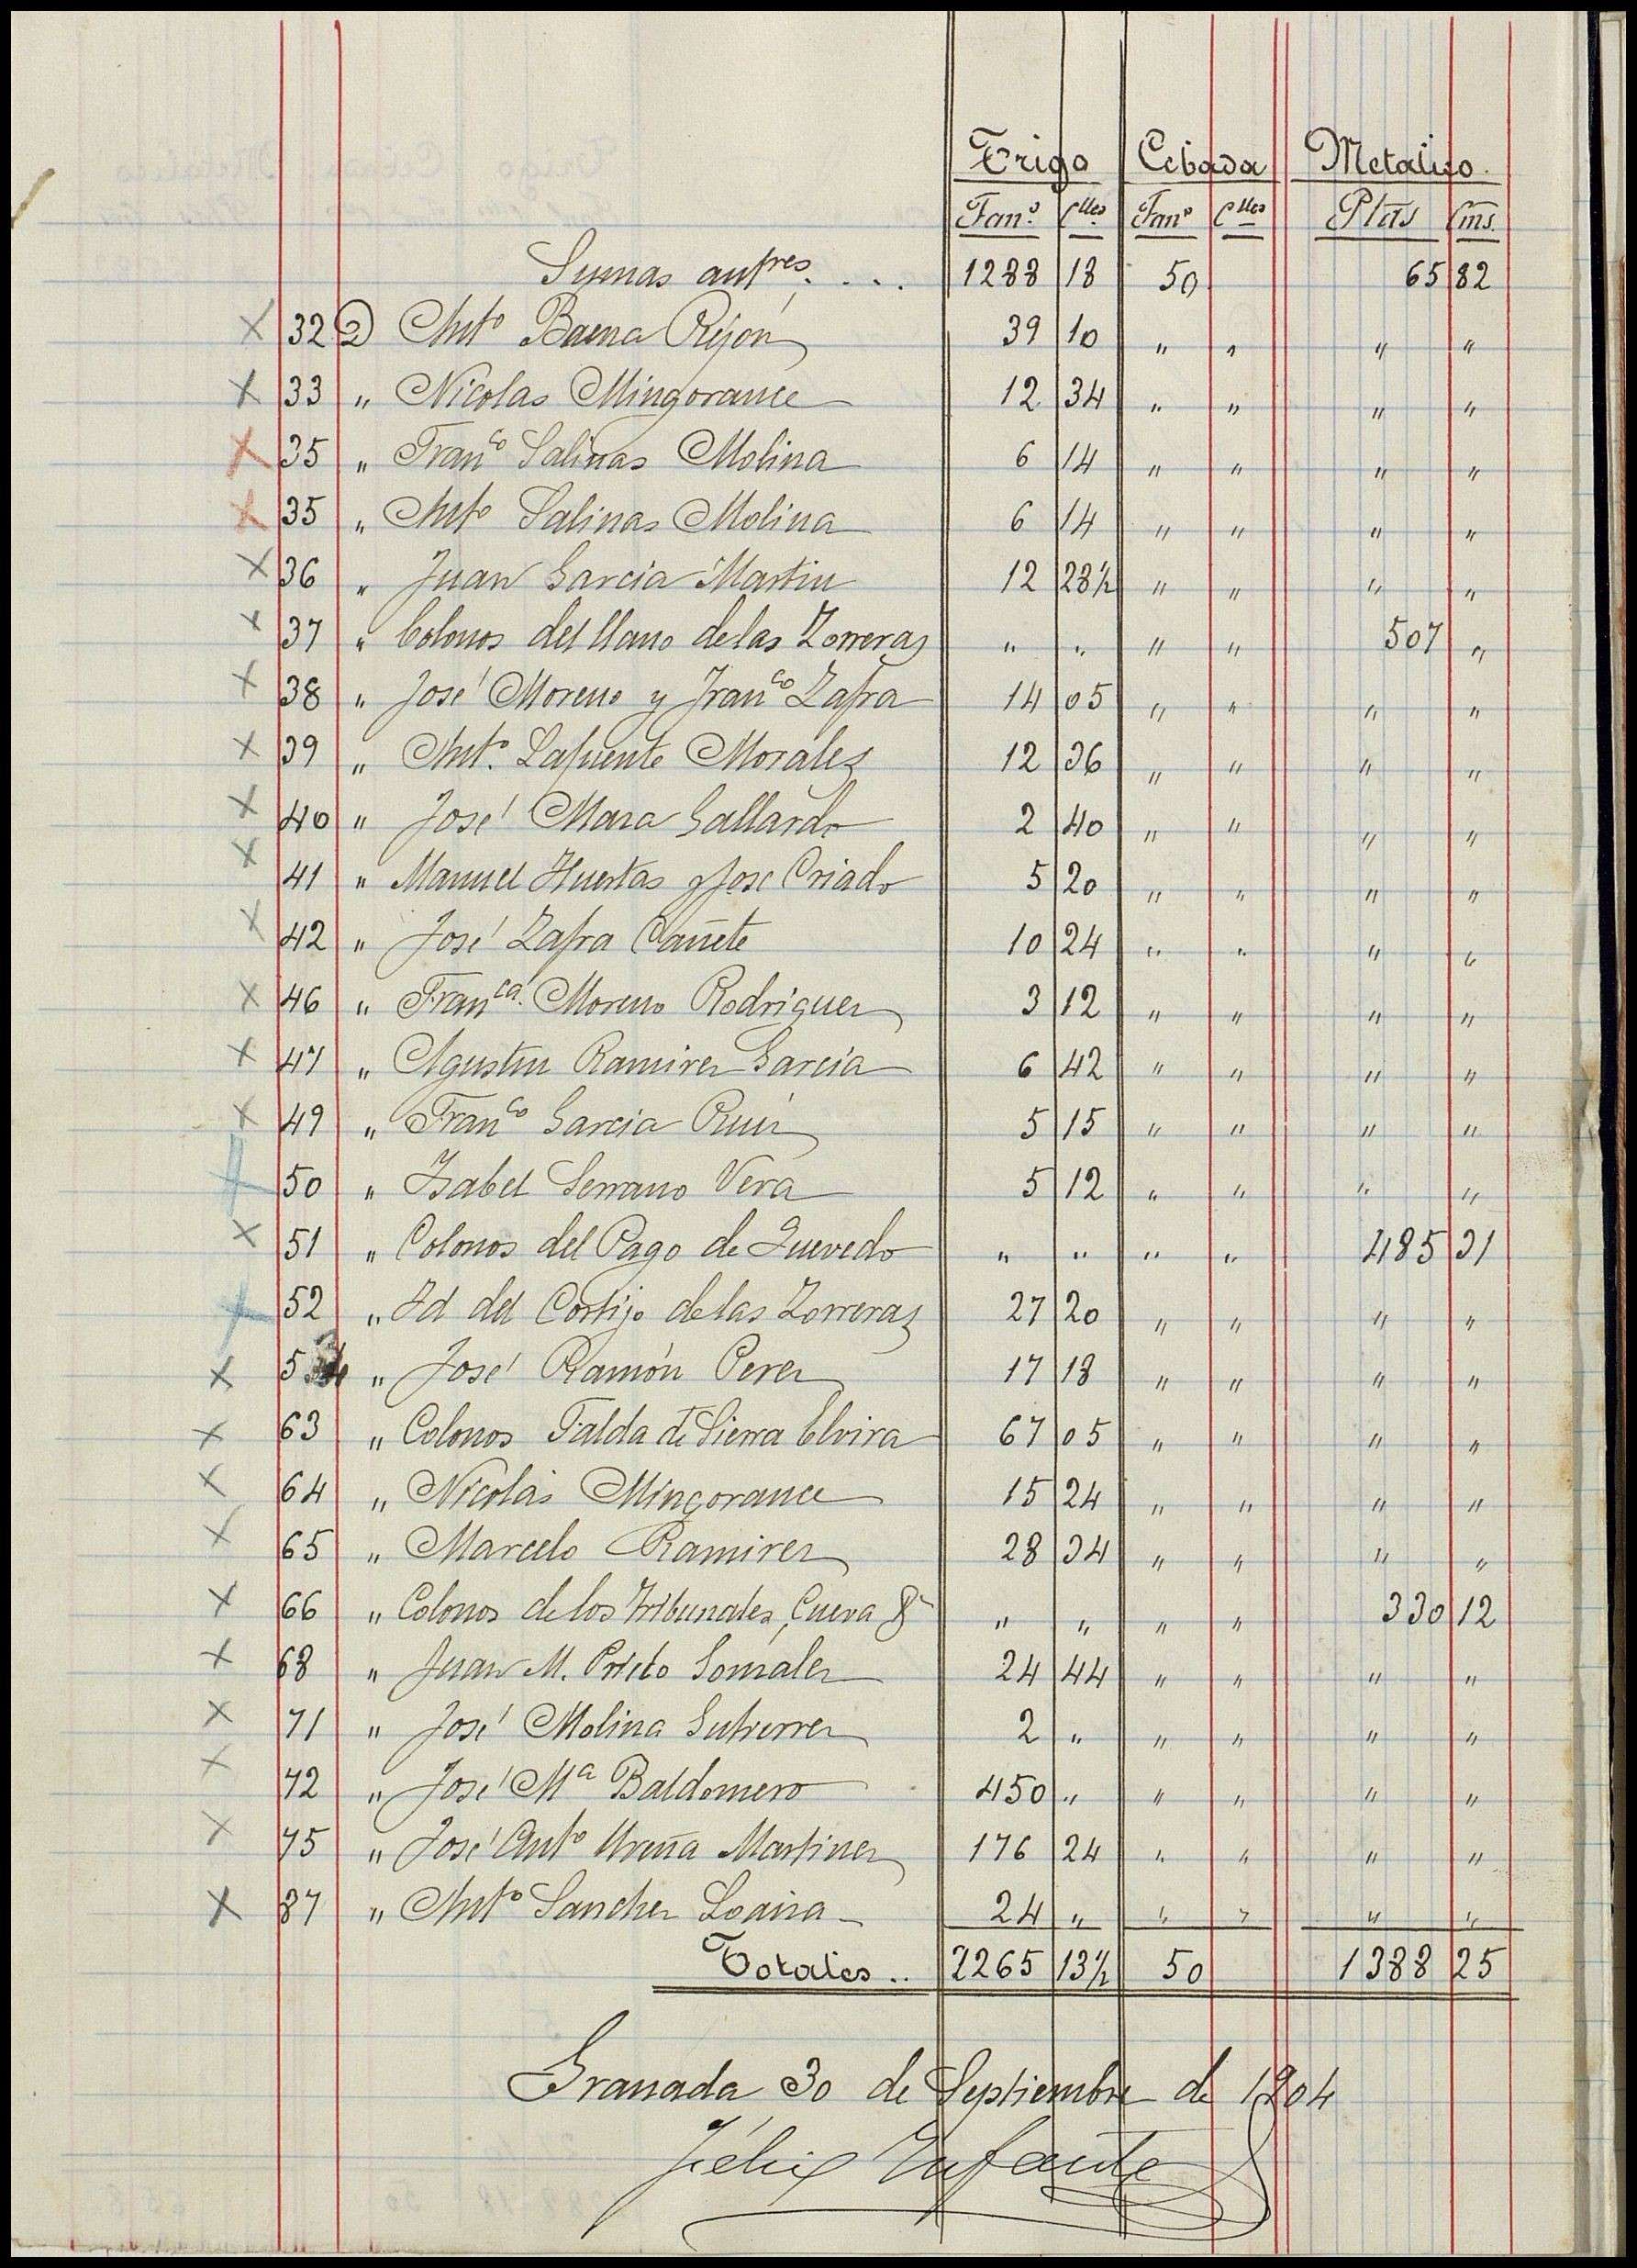 Trigo Cebada Metalico.
Fanˢ Clles Fanˢ Clles Ptas Cms.
Sumas antres. . . . 1288 18 50 65 82
32 D Antº Baena Rejón 39 10 " " " "
33 " Nicolas Mingorance 12 34 " " " "
35 " Francº Salinas Molina 6 14 " " " "
35 " Antº Salinas Molina 6 14 " " " "
36 " Juan Garcia Martin 12 28½ " " " "
37 " Colonos del llano de las Zorreras " " " " 507 "
38 " José Moreno y Francº Zafra 14 05 " " " "
39 " Antº. Lafuente Morales 12 36 " " " "
40 " José Maza Gallardo 2 40 " " " "
41 " Manuel Huertas y Jose Criado 5 20 " " " "
42 " José Zafra Cañete 10 24 " " " "
46 " Franca. Moreno Rodriguez 3 12 " " " "
47 " Agustin Ramirez Garcia 6 42 " " " "
49 " Francº Garcia Ruiz 5 15 " " " "
50 " Isabel Serrano Vera 5 12 " " " "
51 " Colonos del Pago de Quevedo " " " " 485 31
52 " Id del Cortijo de las Zorreras 27 20 " " " "
5 " José Ramón Perez 17 18 " " " "
63 " Colonos Falda de Sierra Elvira 67 05 " " " "
64 " Nicolás Mingorance 15 24 " " " "
65 " Marcelo Ramirez 28 34 " " " "
66 " Colonos de los Tribunales, Cueva &ª " " " " 330 12
68 " Juan M. Prieto Gonzalez 24 44 " " " "
71 " José Molina Gutierrez 2 " " " " "
72 " José Mª Baldomero 450 " " " " "
75 " José Antº Ureña Martinez 176 24 " " " "
87 " Antº Sanchez Loaiza 24 " " " " "
Totales .. 2265 13½ 50 1388 25
Granada 30 de Septiembre de 1904
Félix Infante